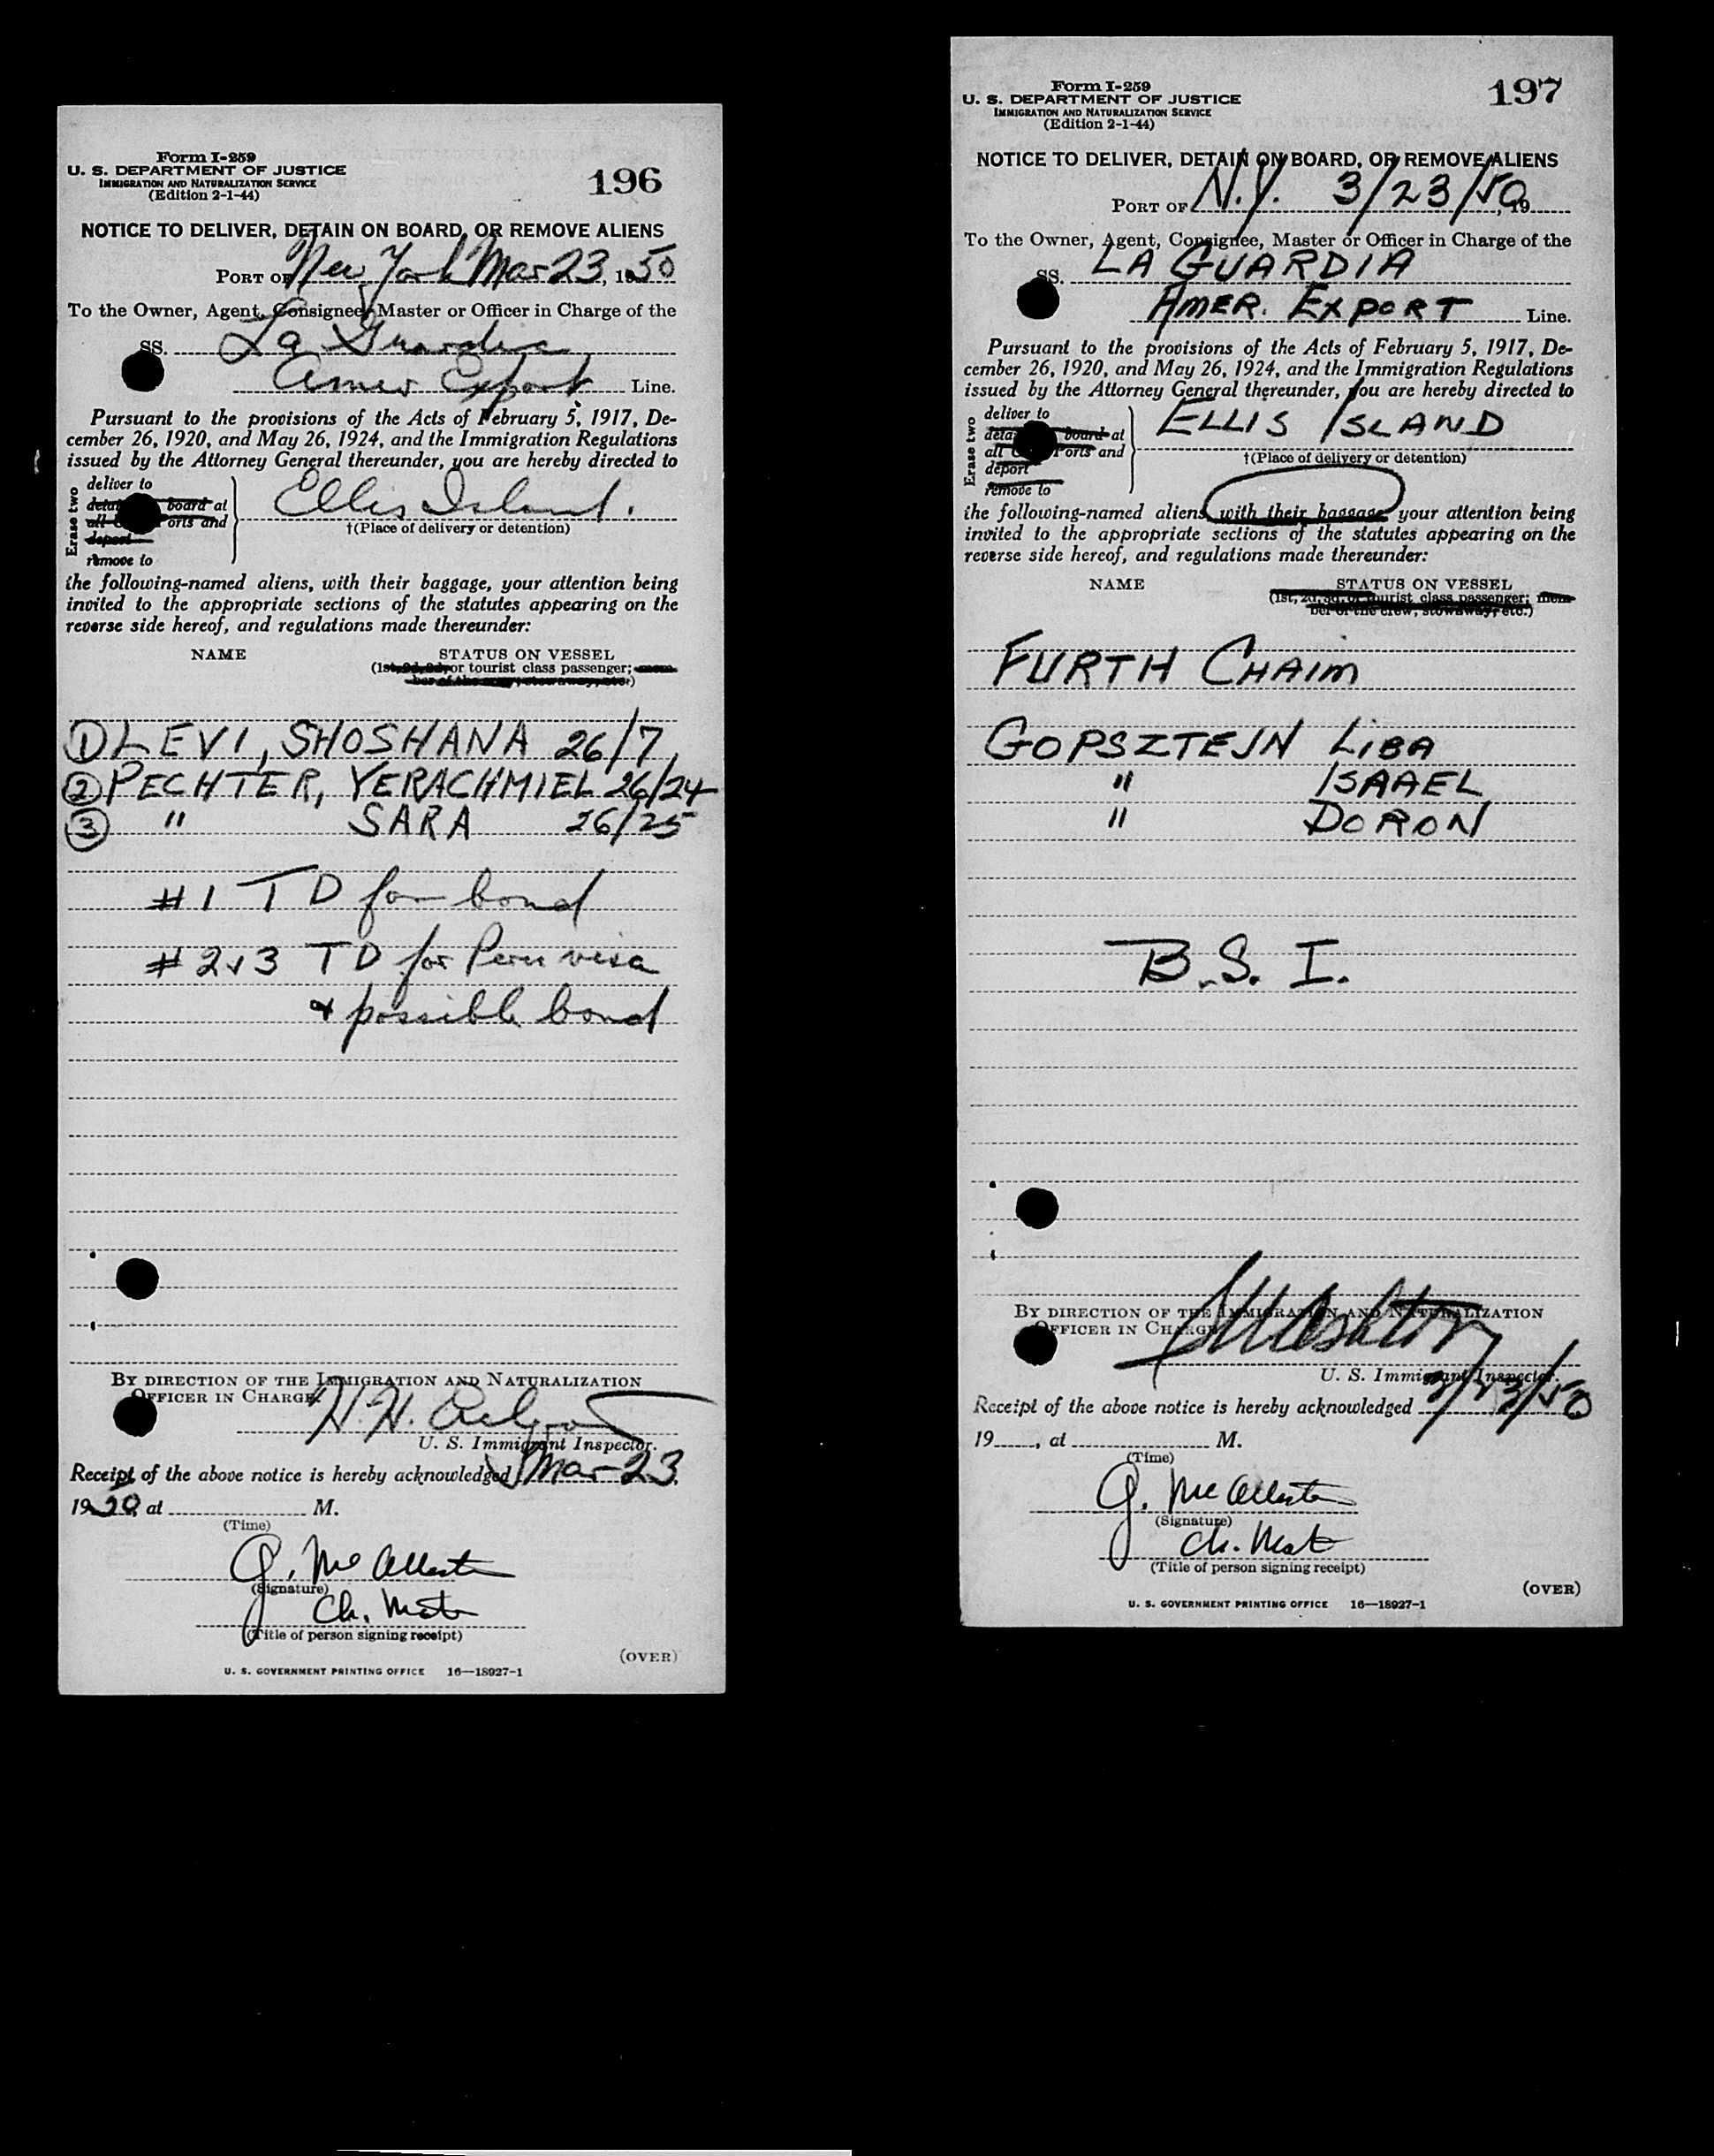 Form I-259
U. S. DEPARTMENT OF JUSTICE
IMMIGRATION AND NATURALIZATION SERVICE
(Edition 2-1-44)
196
NOTICE TO DELIVER, DETAIN ON BOARD, OR REMOVE ALIENS
PORT OF New York Mar 23, 1950
To the Owner, Agent, Consignee, Master or Officer in Charge of the
SS. La Guardia
Amer Export Line.
Pursuant to the provisions of the Acts of February 5, 1917, De-
cember 26, 1920, and May 26, 1924, and the Immigration Regulations
issued by the Attorney General thereunder, you are hereby directed to
Erase two
deliver to
board at
all orts and
deport
remove to
Ellis Island.
†(Place of delivery or detention)
the following-named aliens, with their baggage, your attention being
invited to the appropriate sections of the statutes appearing on the
reverse side hereof, and regulations made thereunder:
NAME STATUS ON VESSEL
(1st, 2d, 3d, or tourist class passenger; mem-
ber of the crew, stowaway, etc.)
① LEVI, SHOSHANA 26/7
② PECHTER, YERACHMIEL 26/24
③ " SARA 26/25
#1 TD for bond
#2 & 3 TD for Peru visa
& possible bond
BY DIRECTION OF THE IMMIGRATION AND NATURALIZATION
OFFICER IN CHARGE.
H. H.
U. S. Immigrant Inspector.
Receipt of the above notice is hereby acknowledged Mar 23,
19 at M.
(Time)
G. McAllester
(Signature)
Ch. Mate
(Title of person signing receipt)
(OVER)
U. S. GOVERNMENT PRINTING OFFICE 16—18927-1
Form I-259
U. S. DEPARTMENT OF JUSTICE
IMMIGRATION AND NATURALIZATION SERVICE
(Edition 2-1-44)
197
NOTICE TO DELIVER, DETAIN ON BOARD, OR REMOVE ALIENS
PORT OF N.Y. 3/23/50, 19
To the Owner, Agent, Consignee, Master or Officer in Charge of the
SS. LA GUARDIA
AMER. EXPORT Line.
Pursuant to the provisions of the Acts of February 5, 1917, De-
cember 26, 1920, and May 26, 1924, and the Immigration Regulations
issued by the Attorney General thereunder, you are hereby directed to
Erase two
deliver to
board at
all orts and
deport
remove to
ELLIS ISLAND
†(Place of delivery or detention)
the following-named aliens, with their baggage, your attention being
invited to the appropriate sections of the statutes appearing on the
reverse side hereof, and regulations made thereunder:
NAME STATUS ON VESSEL
(1st, 2d, 3d, or tourist class passenger; mem-
ber of the crew, stowaway, etc.)
FURTH CHAIM
GOPSZTEJN LIBA
" ISAAEL
" DORON
B.S.I.
BY DIRECTION OF THE IMMIGRATION AND NATURALIZATION
OFFICER IN CHARGE
U. S. Immigrant Inspector.
Receipt of the above notice is hereby acknowledged 3/23/50
19 , at M.
(Time)
G. McAllester
(Signature)
Ch. Mate
(Title of person signing receipt)
(OVER)
U. S. GOVERNMENT PRINTING OFFICE 16—18927-1